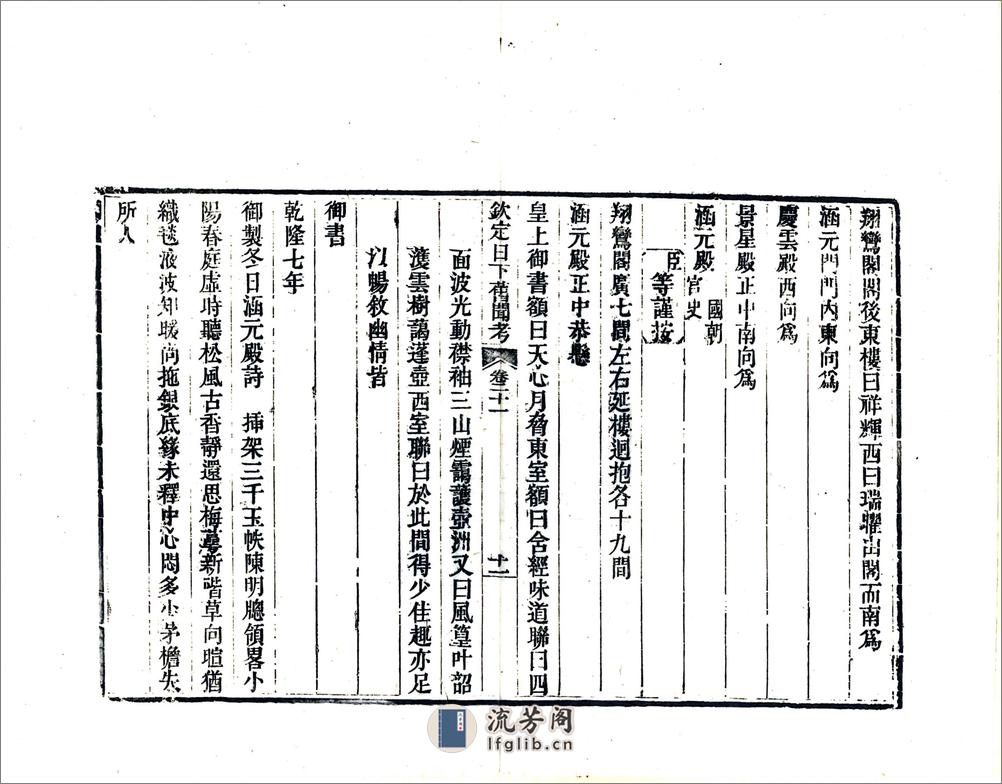 翔鸞閣閣後東樓曰祥輝西曰瑞曜出閣而南爲
涵元門門內東向爲
慶雲殿西向爲
景星殿正中南向爲
涵元殿國朝宮史
臣等謹按
翔鸞閣廣七間左右延樓迴抱各十九間
涵元殿正中恭懸
皇上御書額曰天心月脅東室額曰含經味道聯曰四
欽定日下舊聞考 卷二十一 十一
面波光動襟袖三山煙靄護壺洲又曰風篁叶韶
濩雲樹藹蓬壺西室聯曰於此間得少佳趣亦足
以暢敘幽情皆
御書
乾隆七年
御製冬日涵元殿詩 揷架三千玉帙陳明牕領畧小
陽春庭虛時聽松風古香靜還思梅蕚新階草向暄猶
織毯液波知暖尚拖銀底緣未釋中心悶多少茅檐失
所人
流芳阁
lfglib.cn